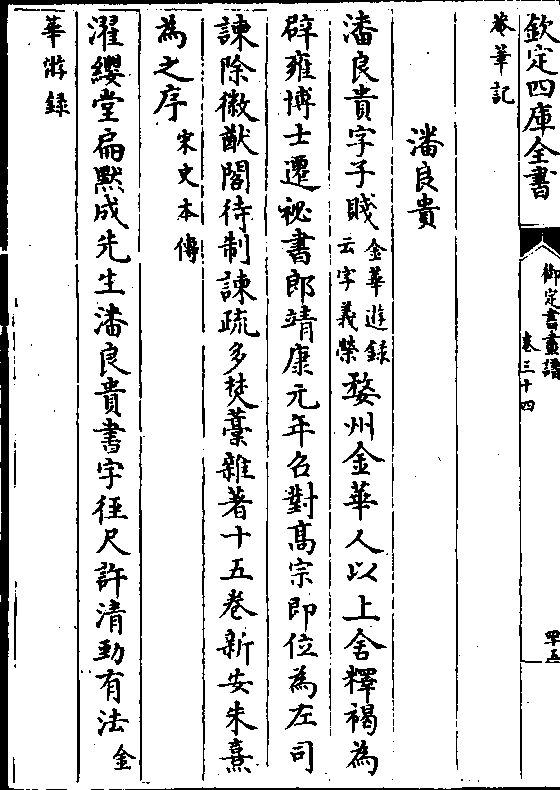 欽定四庫全書
御定書畫譜
卷三十四
四十五
菴筆記
潘良貴
潘良貴字子賤金華遊錄云字義榮婺州金華人以上舍釋褐為
辟雍博士遷祕書郎靖康元年召對髙宗即位為左司
諫除徽猷閣待制諫疏多焚藁雜著十五卷新安朱熹
為之序宋史本傳
濯纓堂扁黙成先生潘良貴書字徑尺許清勁有法金
華游録